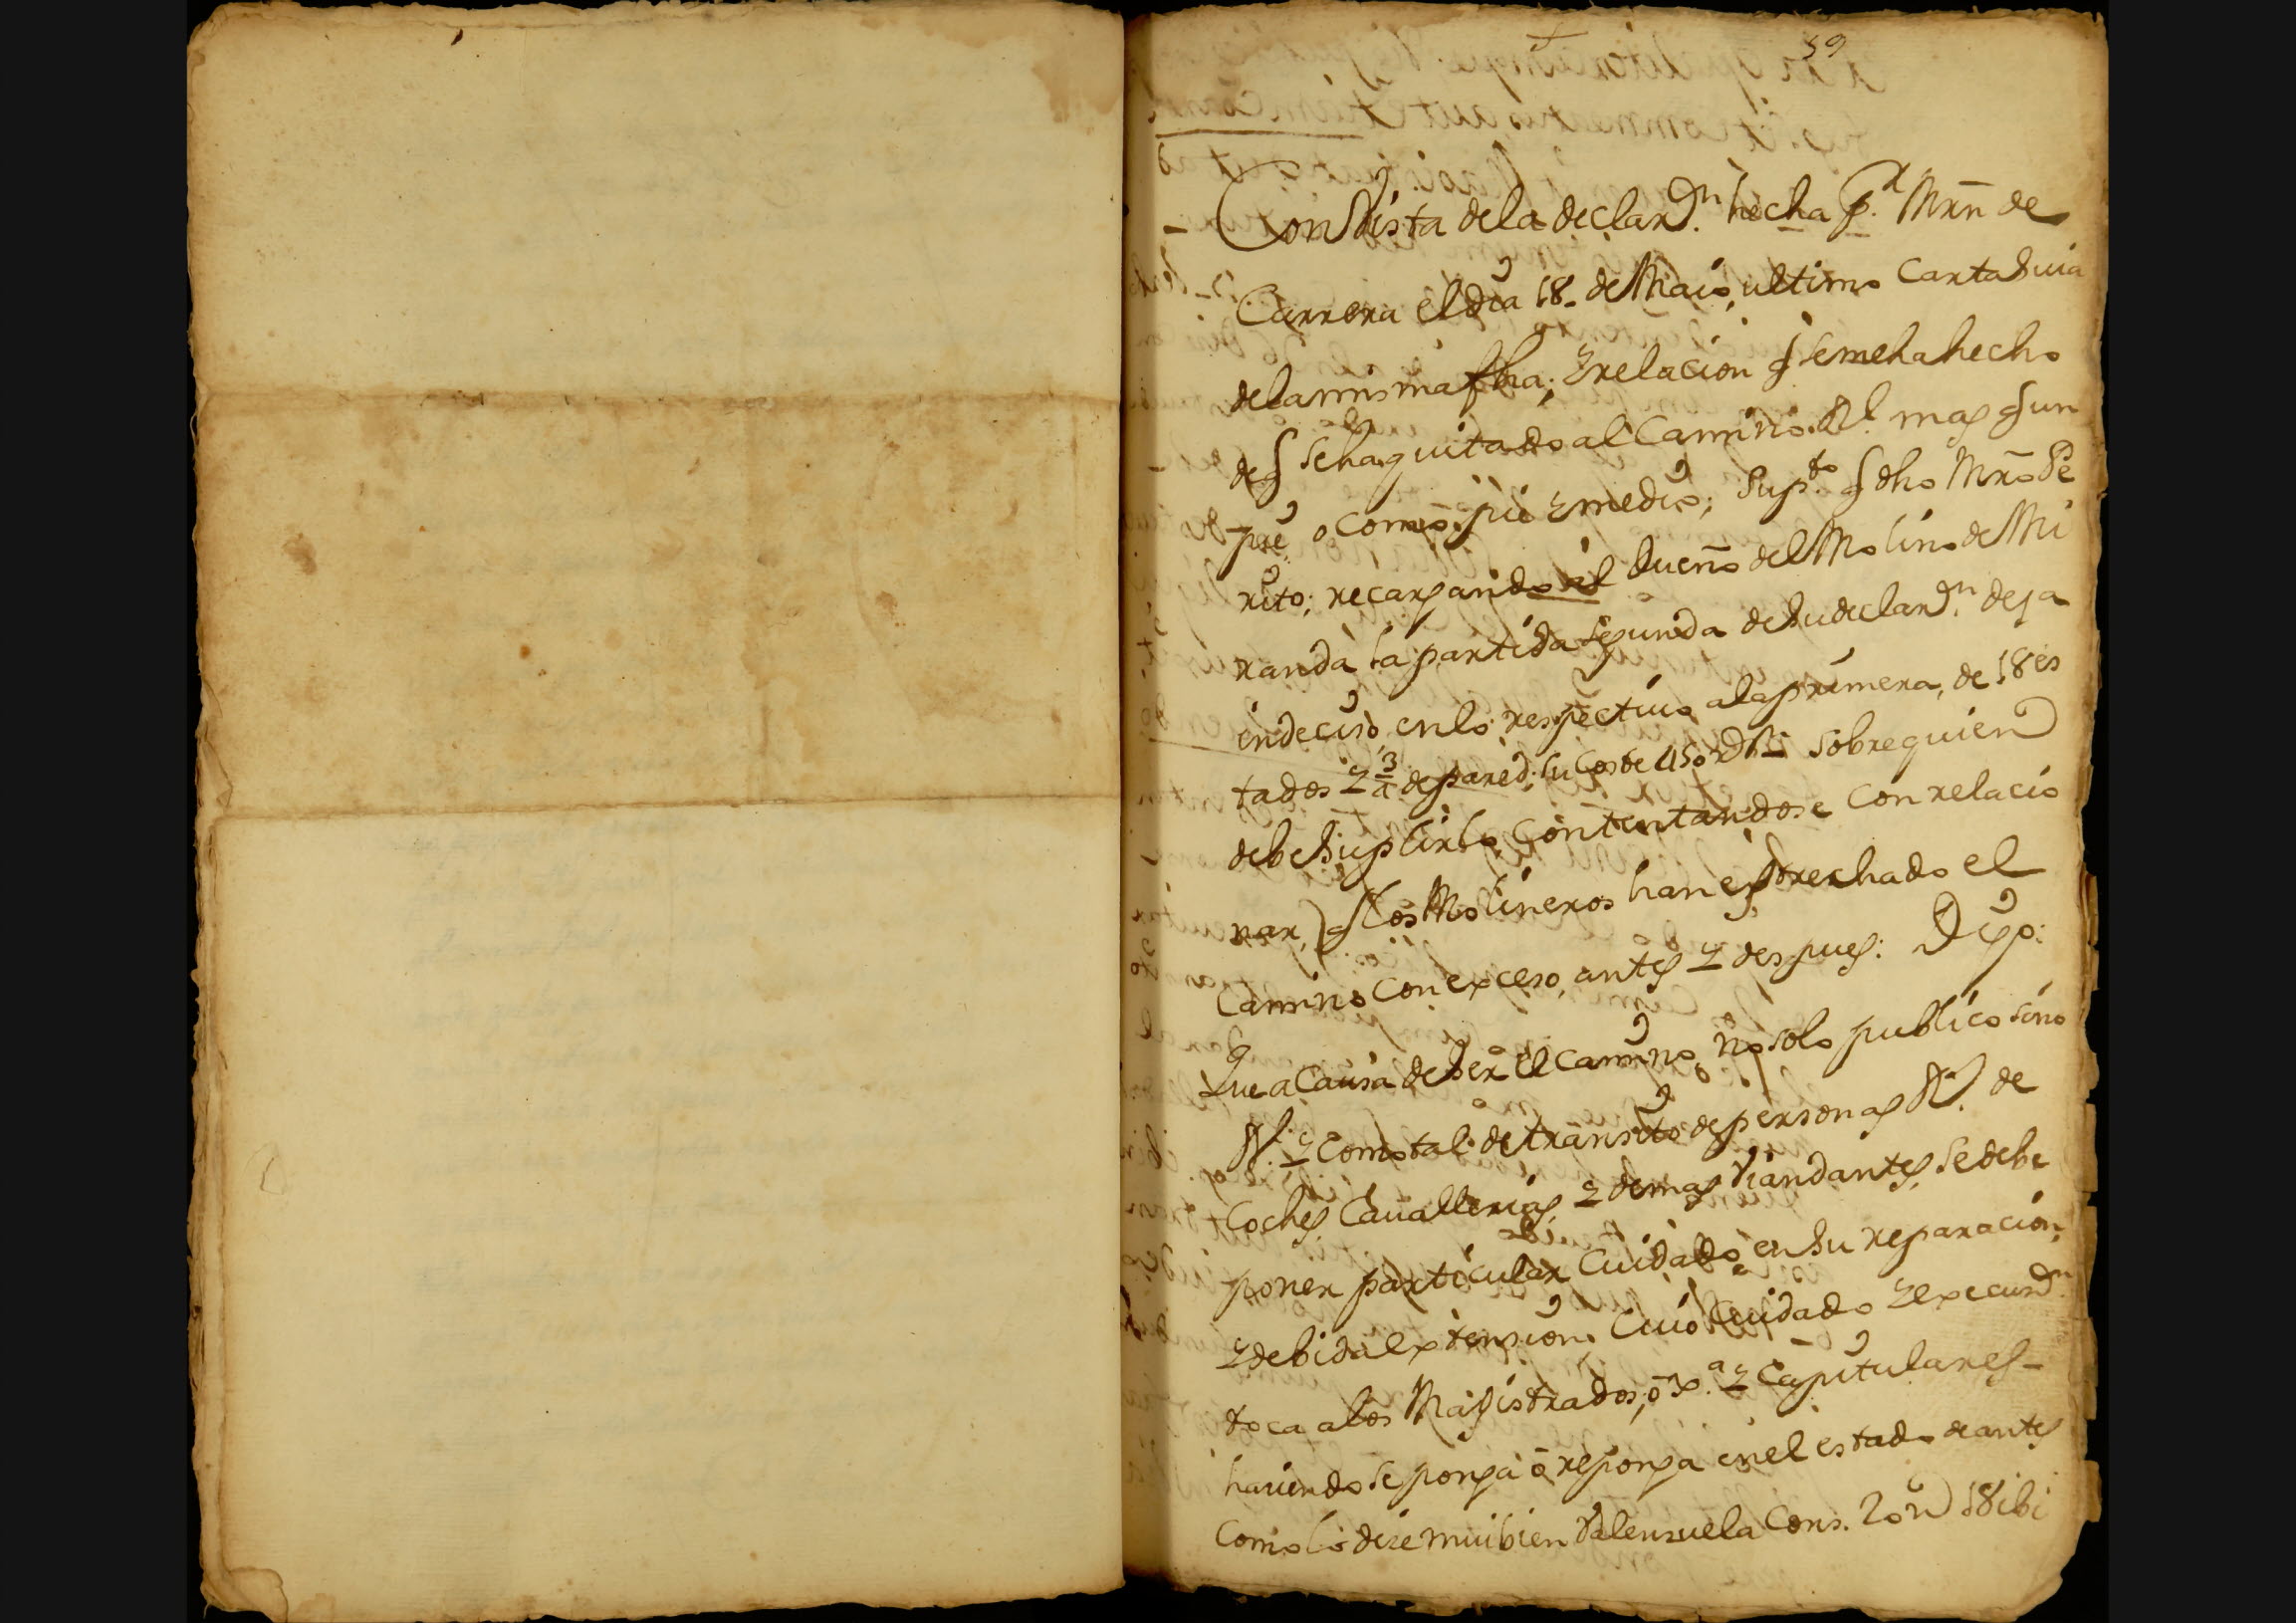 59
Con Vista de la declaron. hecha pr. Mrn de
Carrera el dia 18. de Maio, ultimo carta suia
de la misma fha; y relacion q se me ha hecho
de q se ha quitado al Camino Rl. mas q un
pie o como pie y medio; supto. q dho Mro Pe
rito; recargando al dueño del Molino de Mi
randa la partida segunda de su declaron. deja
indeciso en lo respectivo a la primera, de 18 es
tados y 3/4 de pared; su coste 450 Rs. sobre quien
debe suplirlo, contentandose con relacio
nar, q los Molineros han estrechado el
Camino con exceso, antes y despues: Digo:
Que a causa de ser el camino, no solo publico sino
Rl. y como tal de transito de personas Rs. de
Coches, Cavallerias, y demas viandantes, se debe
poner particular Cuidado, en su reparacion,
y debida extension, Cuio Cuidado y execuon.
toca a los Magistrados, o Xa. y Capitulares
haciendo se ponga o reponga en el estado de antes
como lo dice mui bien Valenzuela Cons. 20 n 18 ibi